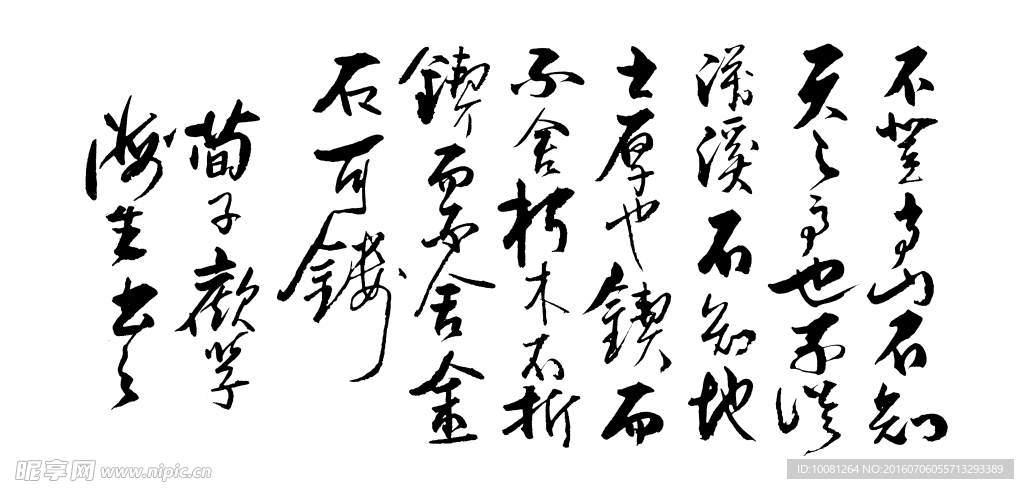 不登高山不知
天之高也不臨
深溪不知地
之厚也鍥而
不舍朽木不折
鍥而不舍金
石可鏤
荀子勸學
海生書之
昵享网 www.nipic.cn
ID:10081264 NO:20160706055713293389